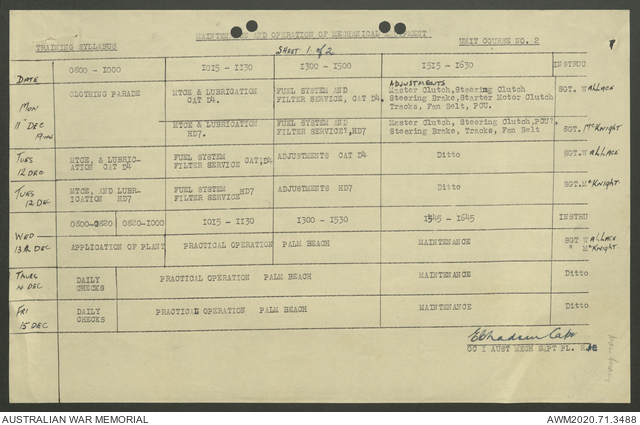 MAINTENANCE AND OPERATION OF MECHANICAL EQUIPMENT
TRAINING SYLLABUS
SHEET 1 of 2
UNIT COURSE NO. 2
DATE
0800 - 1000
1015 - 1130
1300 - 1500
1515 - 1630
INSTRUC
MON
11th DEC
CLOTHING PARADE
MTCE & LUBRICATION
CAT D4.
FUEL SYSTEM AND
FILTER SERVICE, CAT D4.
ADJUSTMENTS
Master Clutch, Steering Clutch
Steering Brake, Starter Motor Clutch
Tracks, Fan Belt, PCU.
SGT. WALLACE
MTCE & LUBRICATION
HD7.
FUEL SYSTEM AND
FILTER SERVICE, HD7
Master Clutch, Steering Clutch, PCU,
Steering Brake, Tracks, Fan Belt
SGT. McKnight
TUES
12 DEC
MTCE, & LUBRIC-
ATION CAT D4
FUEL SYSTEM
FILTER SERVICE CAT D4
ADJUSTMENTS CAT D4
Ditto
SGT. WALLACE
TUES
12 DEC
MTCE, AND LUBR-
ICATION HD7
FUEL SYSTEM
FILTER SERVICE HD7
ADJUSTMENTS HD7
Ditto
SGT. McKnight
0800-0820
0820-1000
1015 - 1130
1300 - 1530
1545 - 1645
INSTRU
WED
13th DEC
APPLICATION OF PLANT
PRACTICAL OPERATION
PALM BEACH
MAINTENANCE
SGT WALLACE
" McKnight.
THURS
14 DEC
DAILY
CHECKS
PRACTICAL OPERATION PALM BEACH
MAINTENANCE
Ditto
FRI
15 DEC
DAILY
CHECKS
PRACTICAL OPERATION PALM BEACH
MAINTENANCE
Ditto
Capt
OC 1 AUST MECH EQPT PL.
AUSTRALIAN WAR MEMORIAL
AWM2020.71.3488